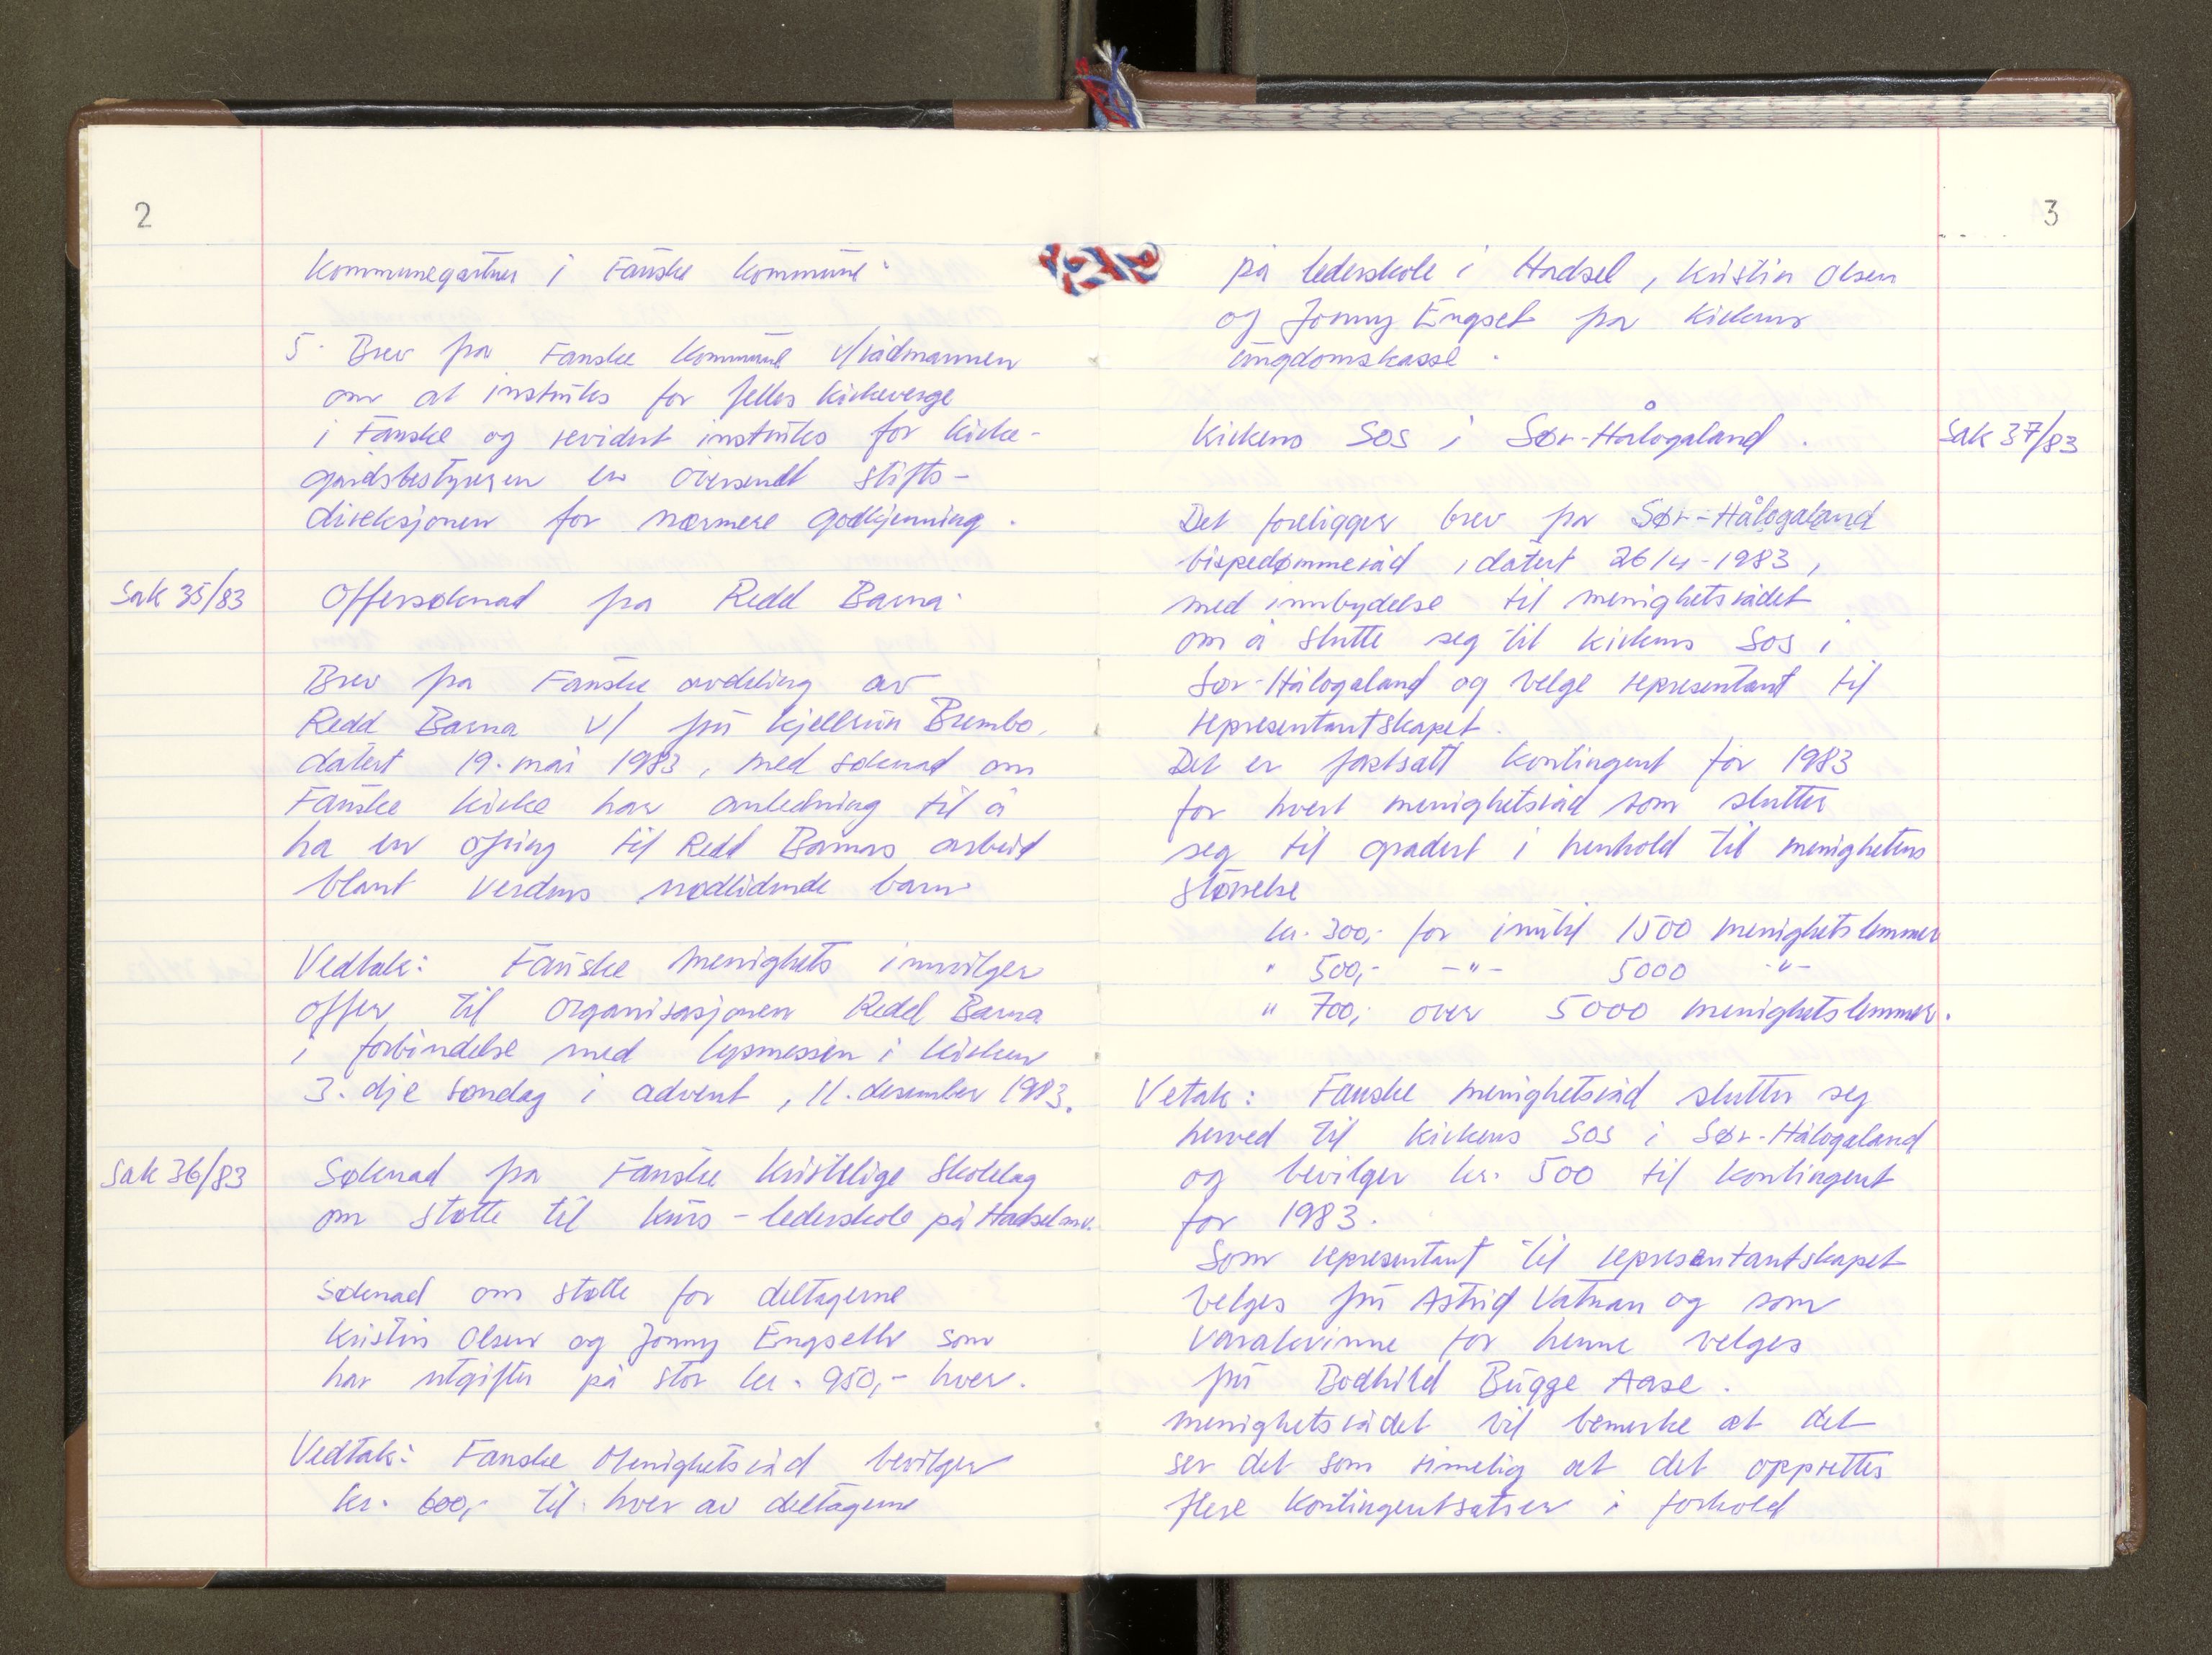 2
Kommunegartner i Fauske kommune.
5. Brev fra Fauske Kommune v/rådmannen
om at instruks for felles kirkeverge
i Fauske og revidert instruks for kirke-
gårdsbestyreren er oversendt stifts-
direksjonen for nærmere godkjenning.
Sak 35/83
Offersøknad fra Redd Barna.
Brev fra Fauske avdeling av
Redd Barna v/ fru Kjellrun Brembo,
datert 19. mai 1983, med søknad om
Fauske kirke har anledning til å
ha en ofring til Redd Barnas arbeid
blant verdens nødlidende barn.
Vedtak: Fauske menighets innvilger
offer til organisasjonen Redd Barna
i forbindelse med lysmessen i kirken
3. dje søndag i advent, 11. desember 1983.
Sak 36/83
Søknad fra Fauske Kristelige Skolelag
om støtte til kurs - lederskole på Hadsel m.v.
Søknad om støtte for deltagerne
Kristin Olsen og Jonny Engseth som
har utgifter på stor kr. 950,- hver.
Vedtak: Fauske Menighetsråd bevilger
kr. 600,- til hver av deltagerne
3
på lederskole i Hadsel, Kristin Olsen
og Jonny Engset fra Kirkens
ungdomskasse.
Kirkens SOS i Sør-Hålogaland.
Sak 37/83
Det foreligger brev fra Sør-Hålogaland
bispedømmeråd, datert 26/4-1983,
med innbydelse til menighetsrådet
om å slutte seg til Kirkens SOS i
Sør-Hålogaland og velge representant til
representantskapet.
Det er fastsatt kontingent for 1983
for hvert menighetsråd som slutter
seg til gradert i henhold til menighetens
størrelse
kr. 300,- for inntil 1500 menighetslemmer
" 500,- -"- 5000 -"-
" 700,- over 5000 menighetslemmer.
Vetak: Fauske menighetsråd slutter seg
herved til Kirkens SOS i Sør-Hålogaland
og bevilger kr. 500 til kontingent
for 1983.
Som representant til representantskapet
velges fru Astrid Vatnan og som
varakvinne for henne velges
fru Bodhild Bugge Aase.
menighetsrådet vil bemerke at det
ser det som rimelig at det opprettes
flere kontingentsatser i forhold